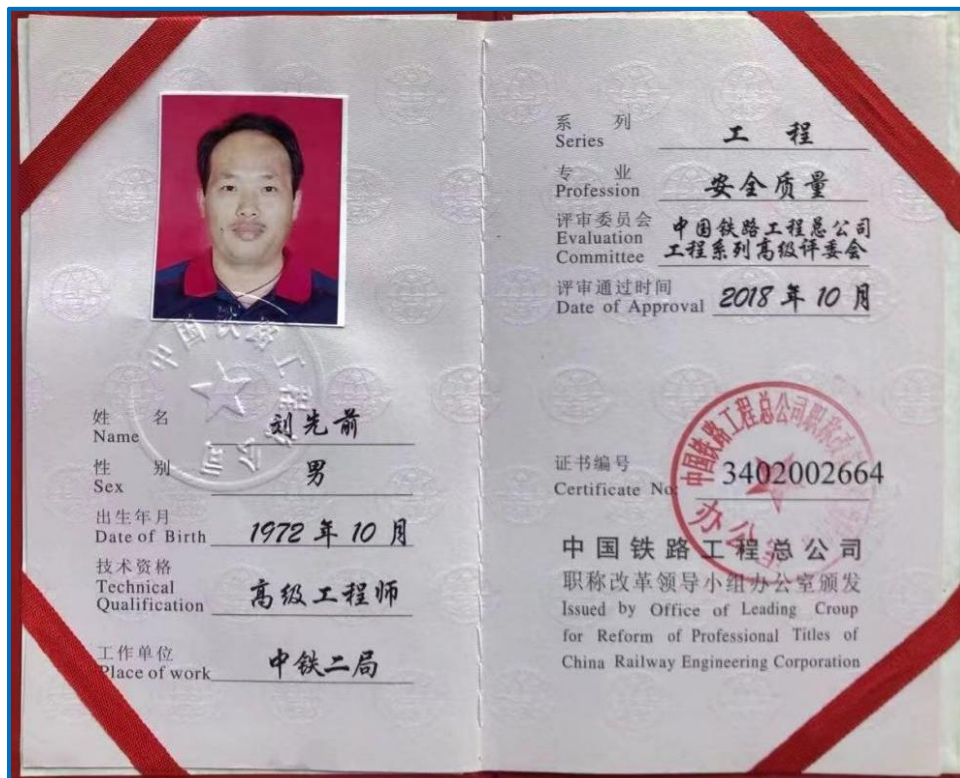 中国铁路工程总公司
姓 名
Name
刘先前
性 别
Sex
男
出生年月
Date of Birth
1972 年 10 月
技术资格
Technical
Qualification
高级工程师
工作单位
Place of work
中铁二局
系 列
Series
工 程
专 业
Profession
安全质量
评审委员会
Evaluation
Committee
中国铁路工程总公司
工程系列高级评委会
评审通过时间
Date of Approval
2018 年 10 月
证书编号
Certificate No:
3402002664
中国铁路工程总公司职称改
办公室
中国铁路工程总公司
职称改革领导小组办公室颁发
Issued by Office of Leading Croup
for Reform of Professional Titles of
China Railway Engineering Corporation